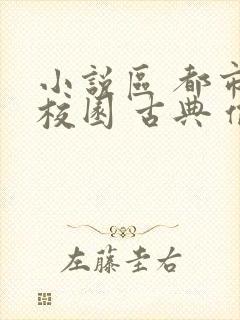 小說區 都市
校園 古典
左藤圭右